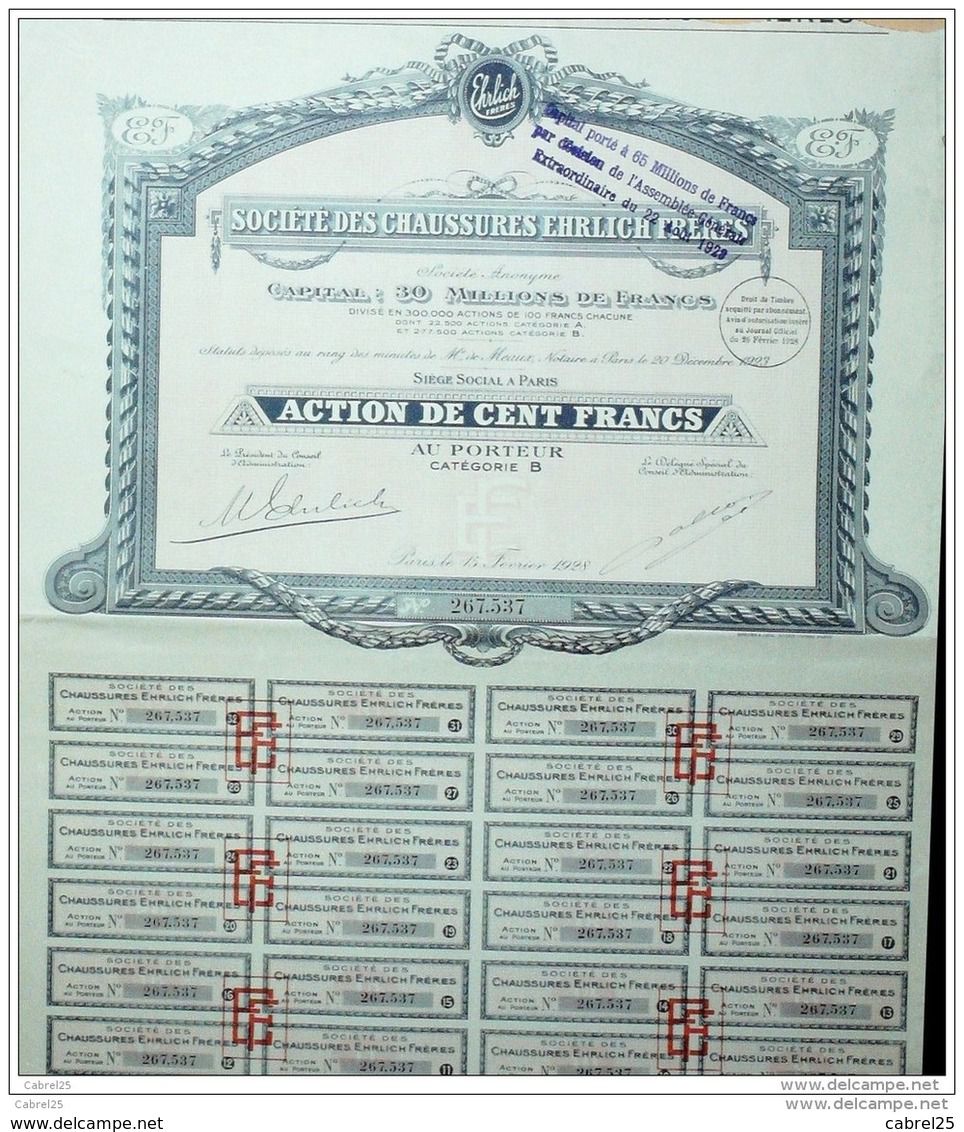 Ehrlich
FRÈRES
EF
EF
Capital porté à 65 Millions de Francs
par décision de l'Assemblée Générale
Extraordinaire du 22 Août 1928
SOCIÉTÉ DES CHAUSSURES EHRLICH FRÈRES
Société Anonyme
CAPITAL : 30 MILLIONS DE FRANCS
DIVISÉ EN 300.000 ACTIONS DE 100 FRANCS CHACUNE
DONT 22.500 ACTIONS CATÉGORIE A.
ET 277.500 ACTIONS CATÉGORIE B.
Droit de Timbre
acquitté par abonnement.
Avis d'autorisation inséré
au Journal Officiel
du 26 Février 1928
Statuts déposés au rang des minutes de Me de Meaux, Notaire à Paris le 20 Décembre 1923
SIÈGE SOCIAL A PARIS
ACTION DE CENT FRANCS
AU PORTEUR
CATÉGORIE B
Le Président du Conseil
d'Administration:
Le Délégué Spécial du
Conseil d'Administration:
Paris le 15 Février 1928
No 267.537
SOCIÉTÉ DES
CHAUSSURES EHRLICH FRÈRES
ACTION AU PORTEUR No 267.537 32
SOCIÉTÉ DES
CHAUSSURES EHRLICH FRÈRES
ACTION AU PORTEUR No 267.537 31
SOCIÉTÉ DES
CHAUSSURES EHRLICH FRÈRES
ACTION AU PORTEUR No 267.537 30
SOCIÉTÉ DES
CHAUSSURES EHRLICH FRÈRES
ACTION AU PORTEUR No 267.537 29
SOCIÉTÉ DES
CHAUSSURES EHRLICH FRÈRES
ACTION AU PORTEUR No 267.537 28
SOCIÉTÉ DES
CHAUSSURES EHRLICH FRÈRES
ACTION AU PORTEUR No 267.537 27
SOCIÉTÉ DES
CHAUSSURES EHRLICH FRÈRES
ACTION AU PORTEUR No 267.537 26
SOCIÉTÉ DES
CHAUSSURES EHRLICH FRÈRES
ACTION AU PORTEUR No 267.537 25
SOCIÉTÉ DES
CHAUSSURES EHRLICH FRÈRES
ACTION AU PORTEUR No 267.537 24
SOCIÉTÉ DES
CHAUSSURES EHRLICH FRÈRES
ACTION AU PORTEUR No 267.537 23
SOCIÉTÉ DES
CHAUSSURES EHRLICH FRÈRES
ACTION AU PORTEUR No 267.537 22
SOCIÉTÉ DES
CHAUSSURES EHRLICH FRÈRES
ACTION AU PORTEUR No 267.537 21
SOCIÉTÉ DES
CHAUSSURES EHRLICH FRÈRES
ACTION AU PORTEUR No 267.537 20
SOCIÉTÉ DES
CHAUSSURES EHRLICH FRÈRES
ACTION AU PORTEUR No 267.537 19
SOCIÉTÉ DES
CHAUSSURES EHRLICH FRÈRES
ACTION AU PORTEUR No 267.537 18
SOCIÉTÉ DES
CHAUSSURES EHRLICH FRÈRES
ACTION AU PORTEUR No 267.537 17
SOCIÉTÉ DES
CHAUSSURES EHRLICH FRÈRES
ACTION AU PORTEUR No 267.537 16
SOCIÉTÉ DES
CHAUSSURES EHRLICH FRÈRES
ACTION AU PORTEUR No 267.537 15
SOCIÉTÉ DES
CHAUSSURES EHRLICH FRÈRES
ACTION AU PORTEUR No 267.537 14
SOCIÉTÉ DES
CHAUSSURES EHRLICH FRÈRES
ACTION AU PORTEUR No 267.537 13
SOCIÉTÉ DES
CHAUSSURES EHRLICH FRÈRES
ACTION AU PORTEUR No 267.537 12
SOCIÉTÉ DES
CHAUSSURES EHRLICH FRÈRES
ACTION AU PORTEUR No 267.537 11
SOCIÉTÉ DES
CHAUSSURES EHRLICH FRÈRES
SOCIÉTÉ DES
CHAUSSURES EHRLICH FRÈRES
Cabrel25
delcampe.net
Cabrel25
delcampe.net
cabrel25
cabrel25